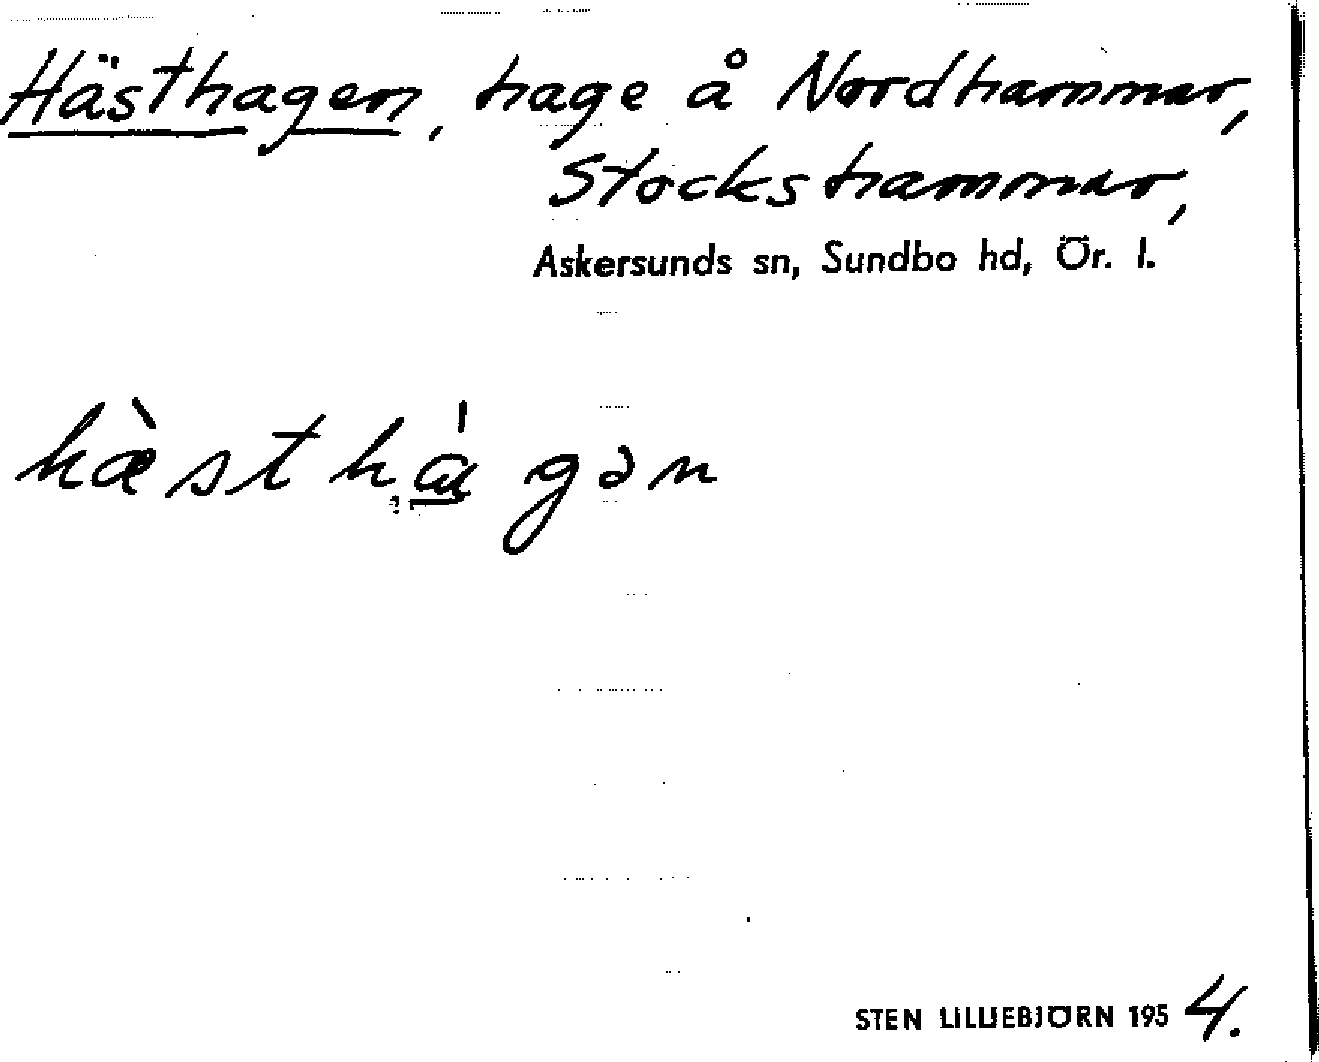 Hästhagen, hage å Nordhammar,
Stockshammar,
Askersunds sn, Sundbo hd, Ör. l.
hæ̀sthɑ̀gən
STEN LILLIEBJÖRN 1954.